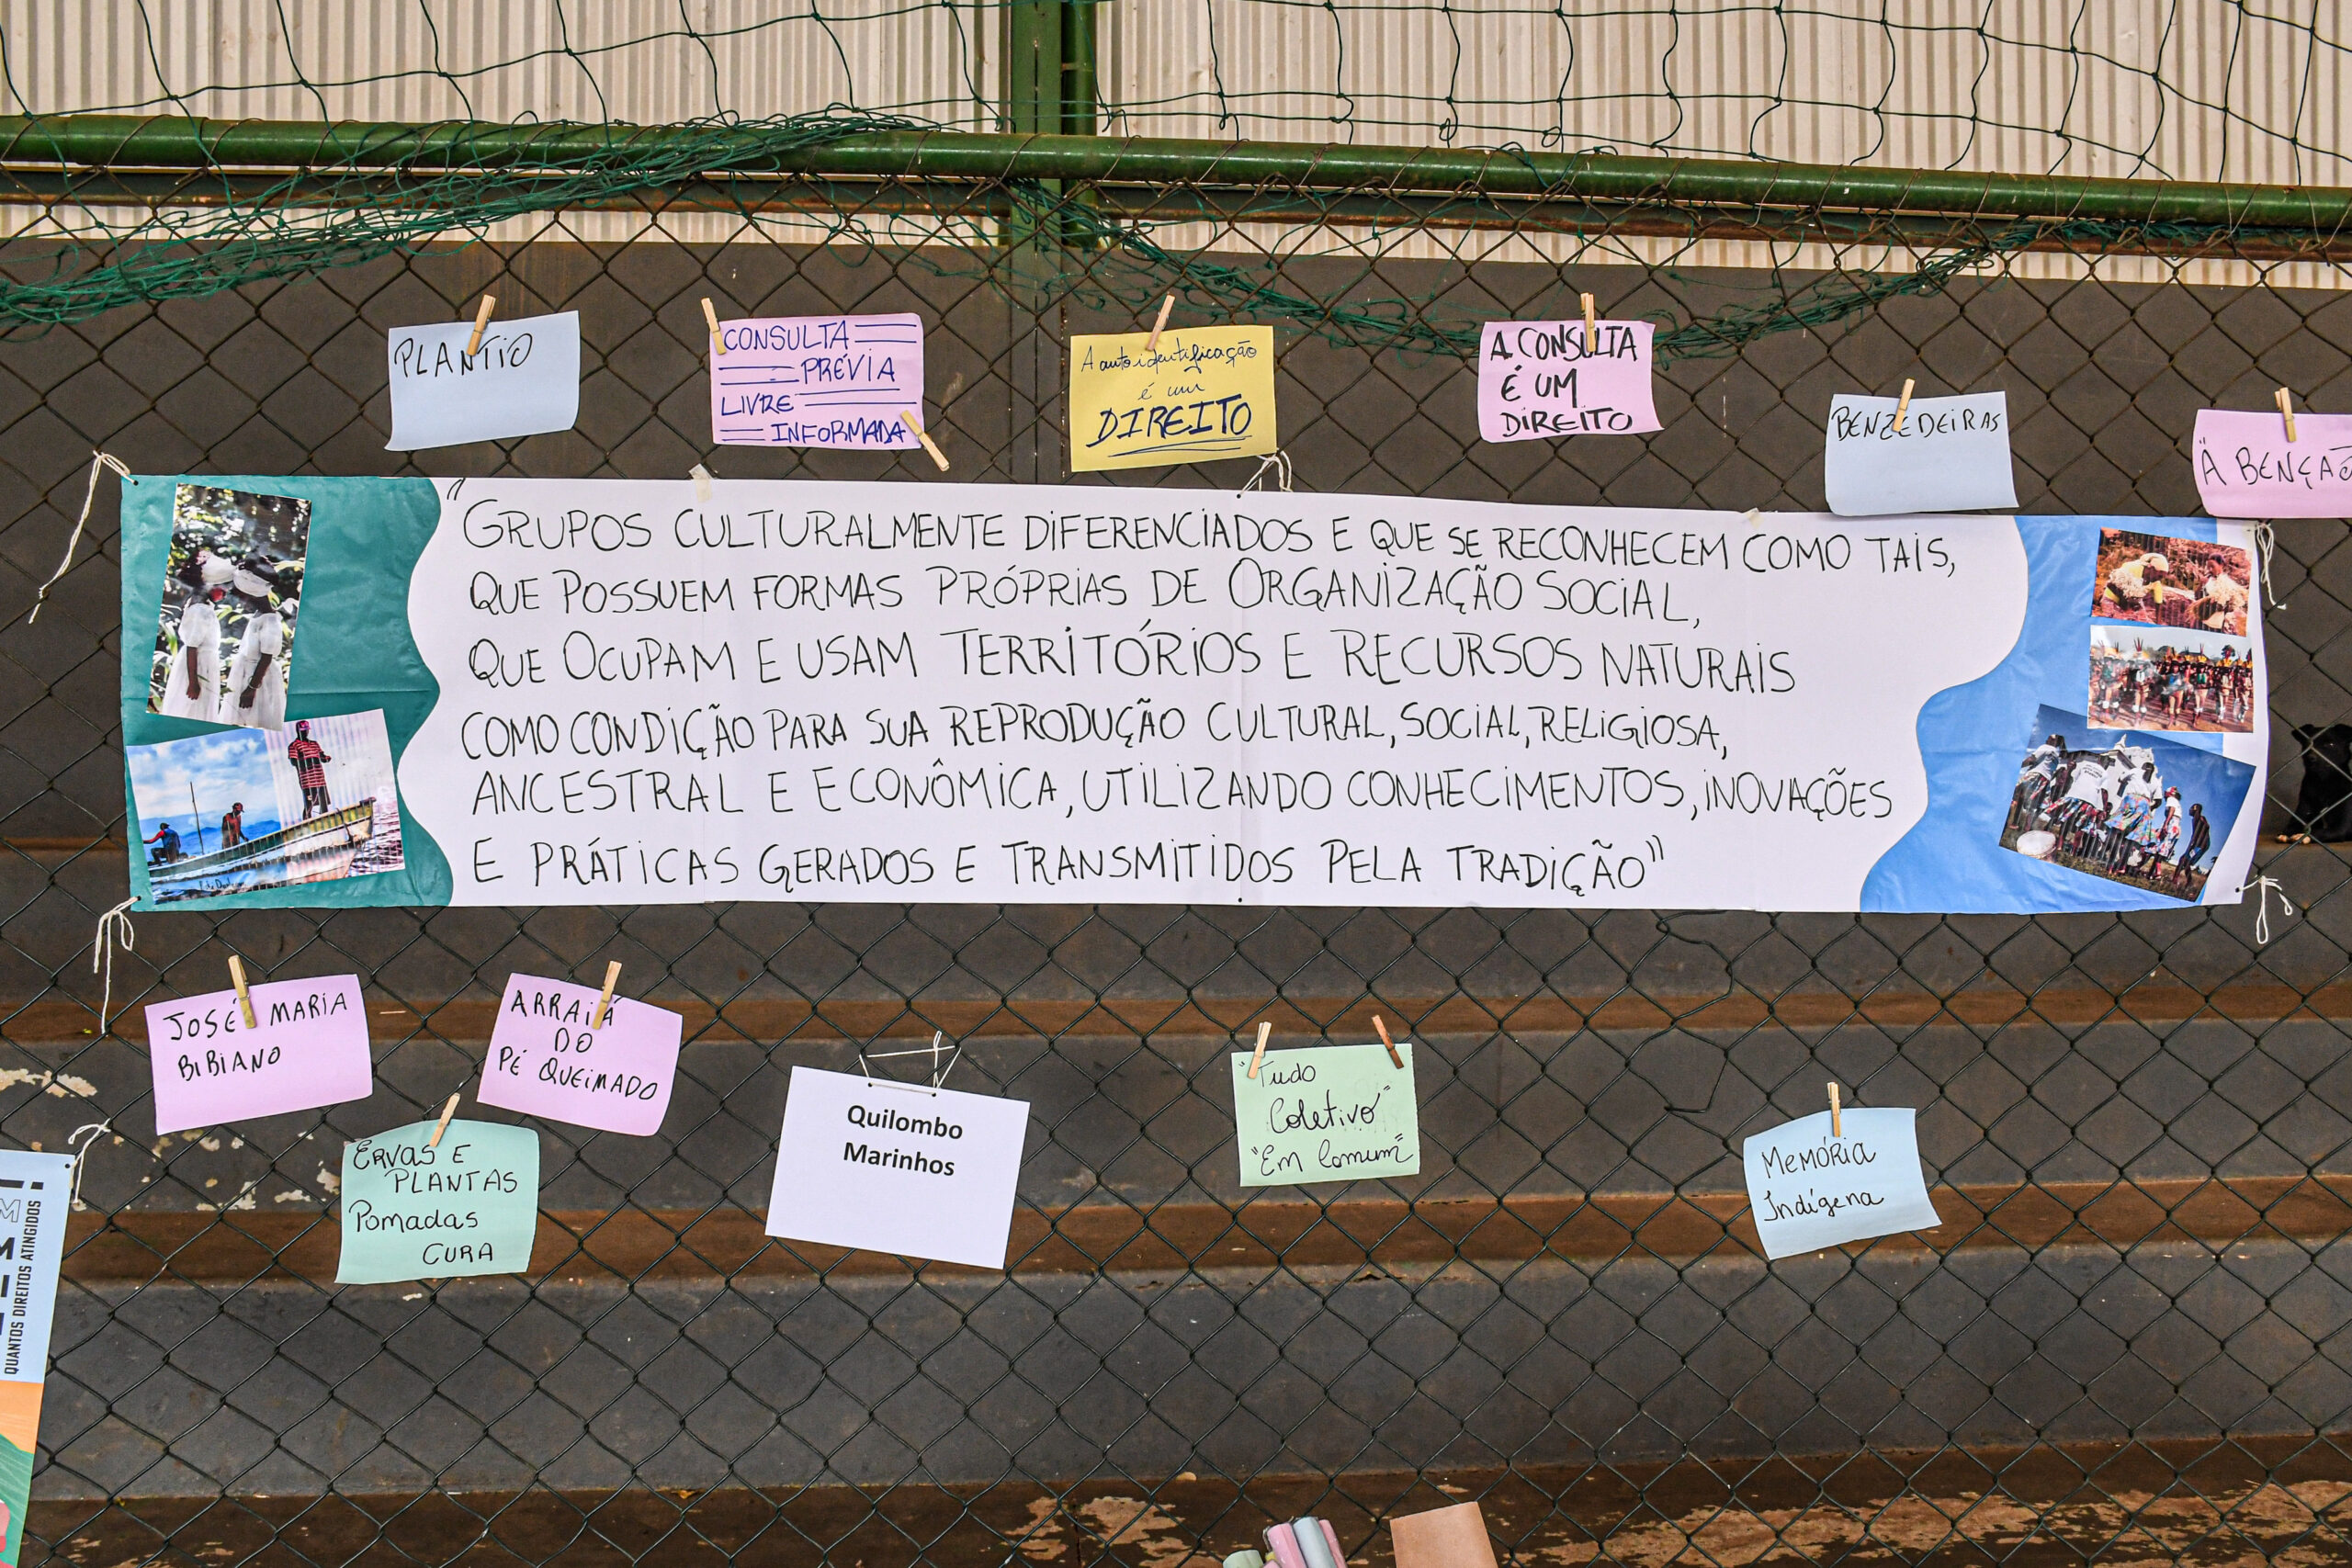 PLANTIO
CONSULTA
PRÉVIA
LIVRE
INFORMADA
A autoidentificação
é um
DIREITO
A CONSULTA
É UM
DIREITO
BENZEDEIRAS
"GRUPOS CULTURALMENTE DIFERENCIADOS E QUE SE RECONHECEM COMO TAIS,
QUE POSSUEM FORMAS PRÓPRIAS DE ORGANIZAÇÃO SOCIAL,
QUE OCUPAM E USAM TERRITÓRIOS E RECURSOS NATURAIS
COMO CONDIÇÃO PARA SUA REPRODUÇÃO CULTURAL, SOCIAL, RELIGIOSA,
ANCESTRAL E ECONÔMICA, UTILIZANDO CONHECIMENTOS, INOVAÇÕES
E PRÁTICAS GERADOS E TRANSMITIDOS PELA TRADIÇÃO"
JOSÉ MARIA
BIBIANO
ARRAIÁ
DO
PÉ QUEIMADO
ERVAS E
PLANTAS
Pomadas
CURA
Quilombo
Marinhos
"Tudo
Coletivo"
"Em Comum"
Memória
Indígena
QUANTOS DIREITOS ATINGIDOS